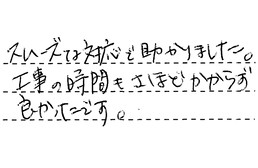 スムーズな対応で助かりました。
工事の時間もさほどかからず
良かったです。